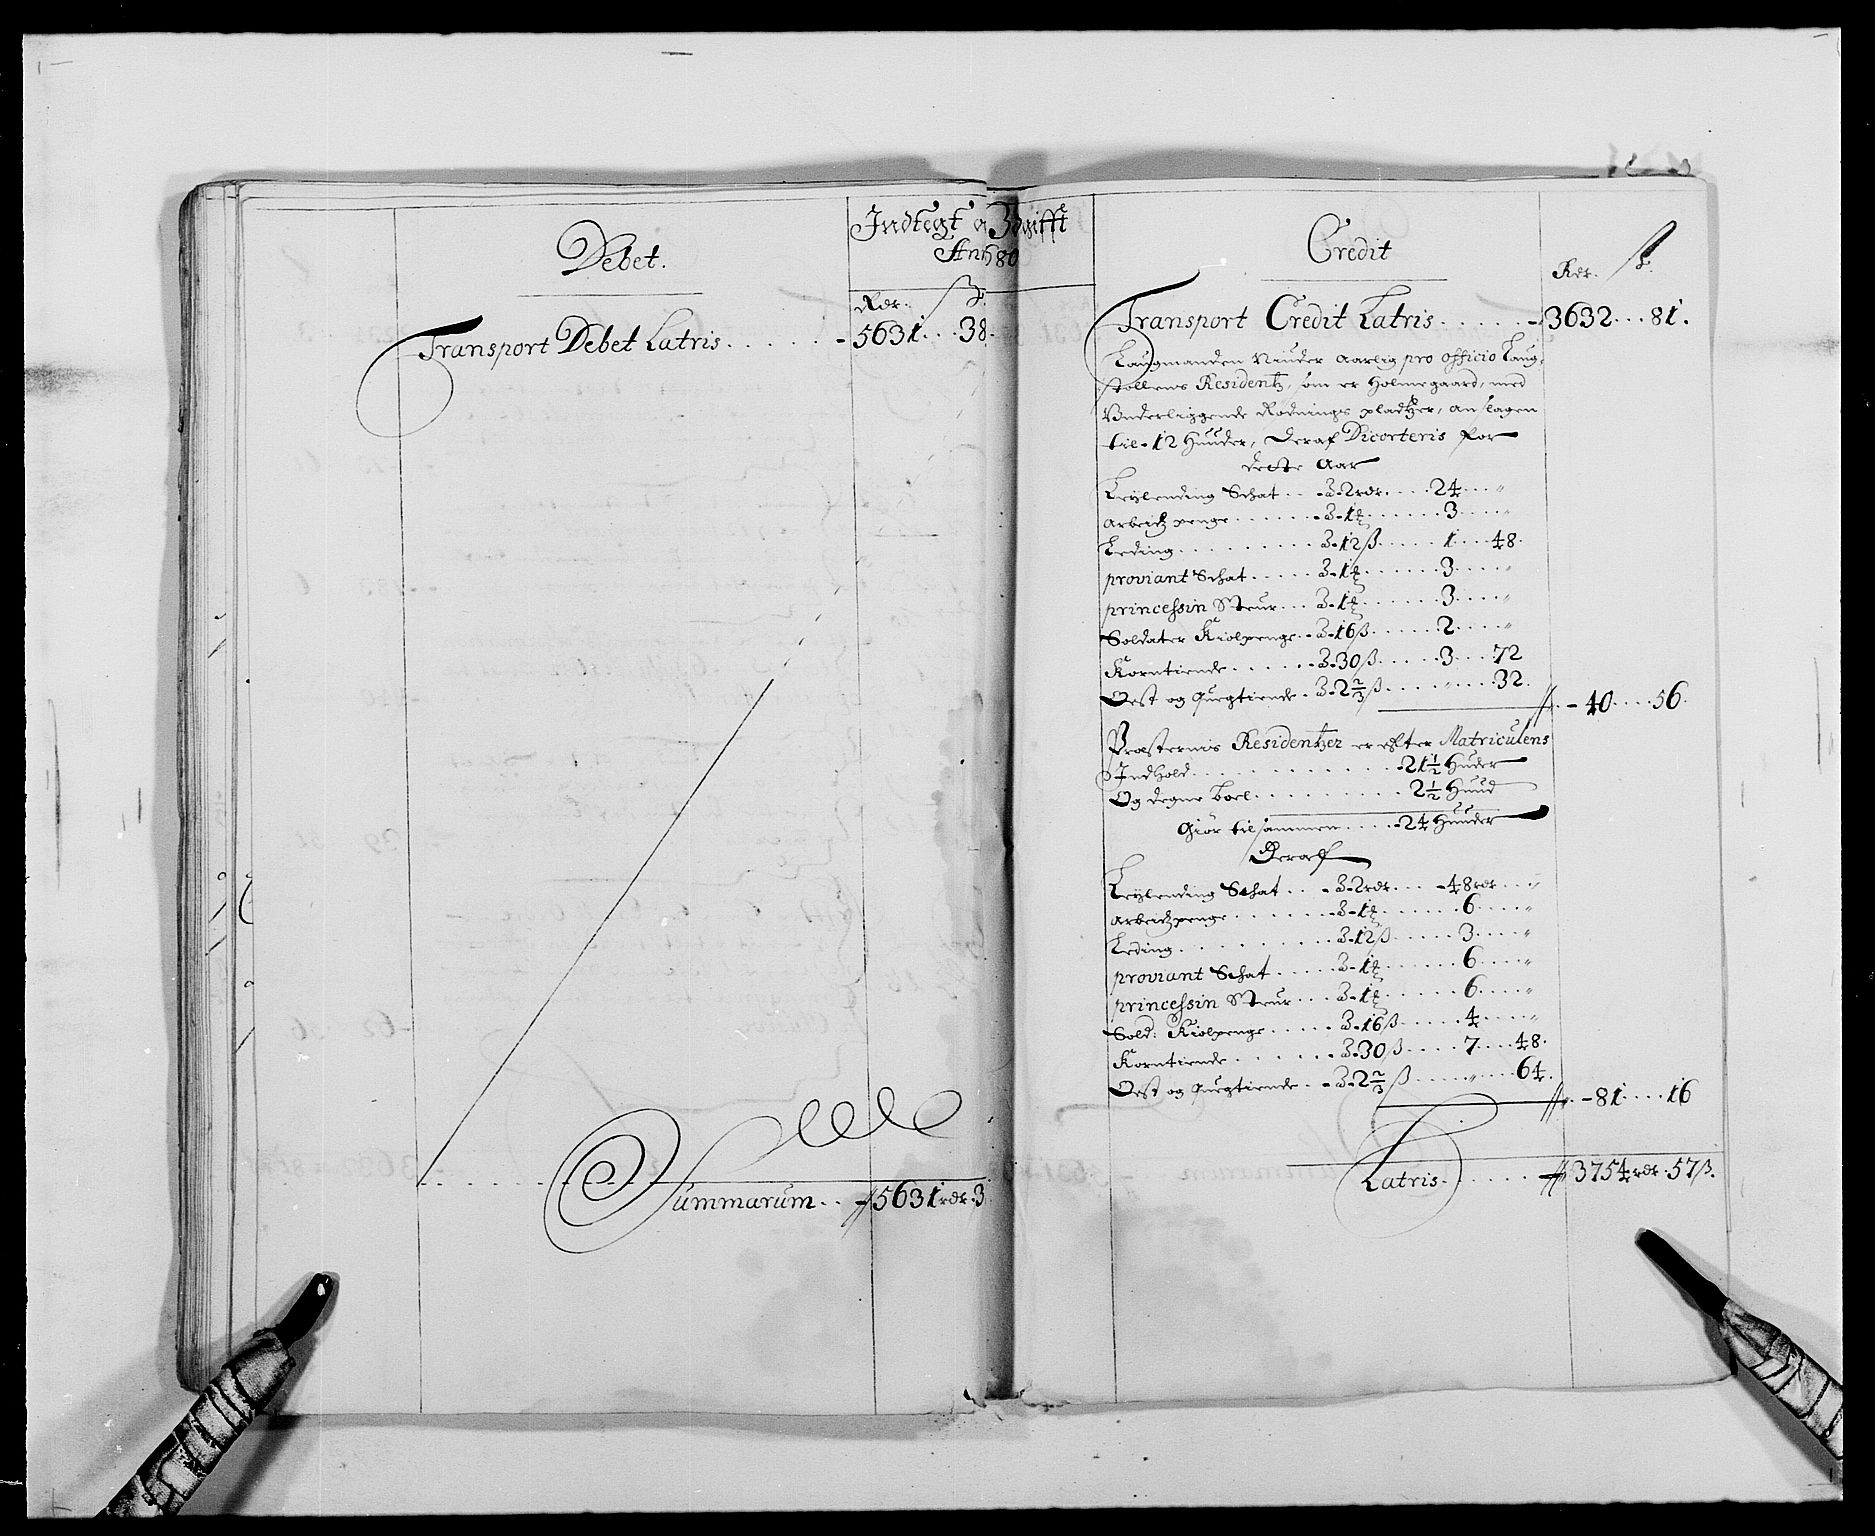 Debet.
Indtegt o Udgifft
Ann 80
Rdr. ß.
Transport Debet Latris . . . . . - 5631 . . . 38
Summarum . . - 5631 rdr. 3
Credit
Rdr. ß.
Transport Credit Latris . . . . . - 3632 . . . 81.
Laugmanden Niuder Aarlig pro officio Laug-
stollens Residentz, som er Holmegaard, med
Vnderliggende Rødnings pladtzer, anslagen
til - 12 Huuder, deraf Dicorteris for
dette Aar
Leylending Schat . . - 3 - 2 rdr. . . . 24 . . . "
Arbeidtz penge . . . . . . - 3 - 1 ƶ . . . . . . 3 . . . "
Leding . . . . . . . . . 3 - 12 ß . . . . 1 . . . 48.
proviant Schat . . . . . 3 - 1 ƶ . . . . . . 3 . . . "
princessin Steur . . . 3 - 1 ƶ . . . . . . 3 . . . "
Soldater Kiolpenge . - 3 - 16 ß . . . . . 2 . . . "
Korntiende . . . . . . - 3 - 30 ß . . . . . 3 . . . 72
Oest og Quegtiende . 3 - 2 2/3 ß . . . . " . . . . 32.
- 40 . . . . 56.
Præsternis Residentzer er efter Matriculens
Indhold . . . . . . . . . . . - 21 1/2 Huder
Og degne boel . . . . . . . . . 2 1/2 Huud
Giør tilsammen . . . . - 24 Huuder
Deraf
Leylending Schat . . - 3 - 2 rdr. . . . - 48 rdr . . . "
Arbeidtzpenge . . . . . . - 3 - 1 ƶ . . . . . . 6 . . . . "
Leding . . . . . . . . . . - 3 - 12 ß . . . . . 3 . . . . "
proviant Schat . . . . . 3 - 1 ƶ . . . . . . 6 . . . . "
princessin Steur . . . 3 - 1 ƶ . . . . . . 6 . . . . "
Sold: Kiolpenge . . . . . 3 - 16 ß . . . . . 4 . . . . "
Korntiende . . . . . . . - 3 - 30 ß . . . . 7 . . . 48.
Oest og Quegtiende . . - 3 - 2 2/3 ß . . . . " . . . 64.
- 81 . . . . 16
Latris . . . . . . - 3754 rdr . 57 ß.